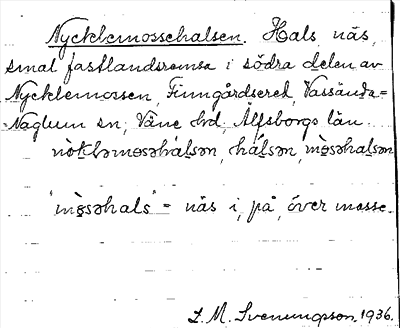 Nycklemossehalsen. Hals, näs,
smal fastlandsremsa i södra delen av
Nycklemossen, Finngårdseret, Vassända=
=Naglum sn, Väne hd, Älfsborgs län.
nòk̀ləmo̜səhàlsən, hálsən, mò̜səhalsən
"mò̜səhals" = näs i, på, över mosse.
L. M. Svenungsson. 1936.